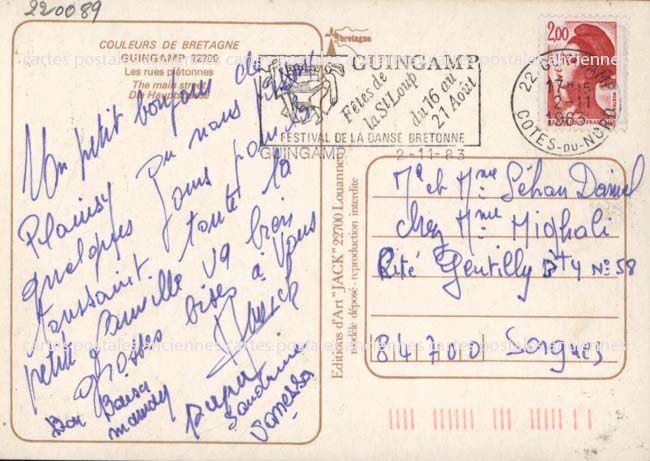 220089
COULEURS DE BRETAGNE
GUINGAMP 22200
Les rues piétonnes
The main street
Die Hauptstrasse
Un petit bonjour de
Plouisy ou nous passons
quelques jours pour la
Toussaint. toute la
petite famille va bien
Grosses bises à Vous
Bon Baiser
maman
papa
Sandrine
Vanessa
bretagne
GUINGAMP
Fêtes de
la St Loup
du 16 au
21 Août
FESTIVAL DE LA DANSE BRETONNE
GUINGAMP 2-11-83
2,00
22 GUINGAMP
17H15
2-11
1983
COTES-DU-NORD
Editions d'Art "JACK" 22700 Louannec
modèle déposé - reproduction interdite
Mr et Mme Séhan Daniel
chez Mme Mighali
Cité Gentilly Bt 4 N° 58
84700 Sorgues
cartes postales anciennes